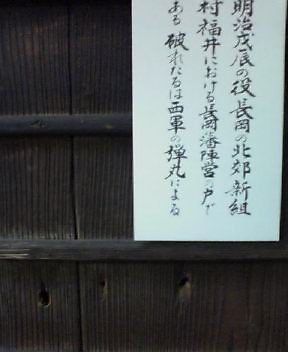 明治戊辰の役長岡の北郊新組
村福井における長岡藩陣営の戸で
ある 破れたるは西軍の弾丸による